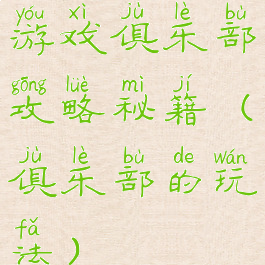 yóu xì jù lè bù
游戏俱乐部
gōng lüè mì jí
攻略秘籍（
jù lè bù de wán
俱乐部的玩
fǎ
法）